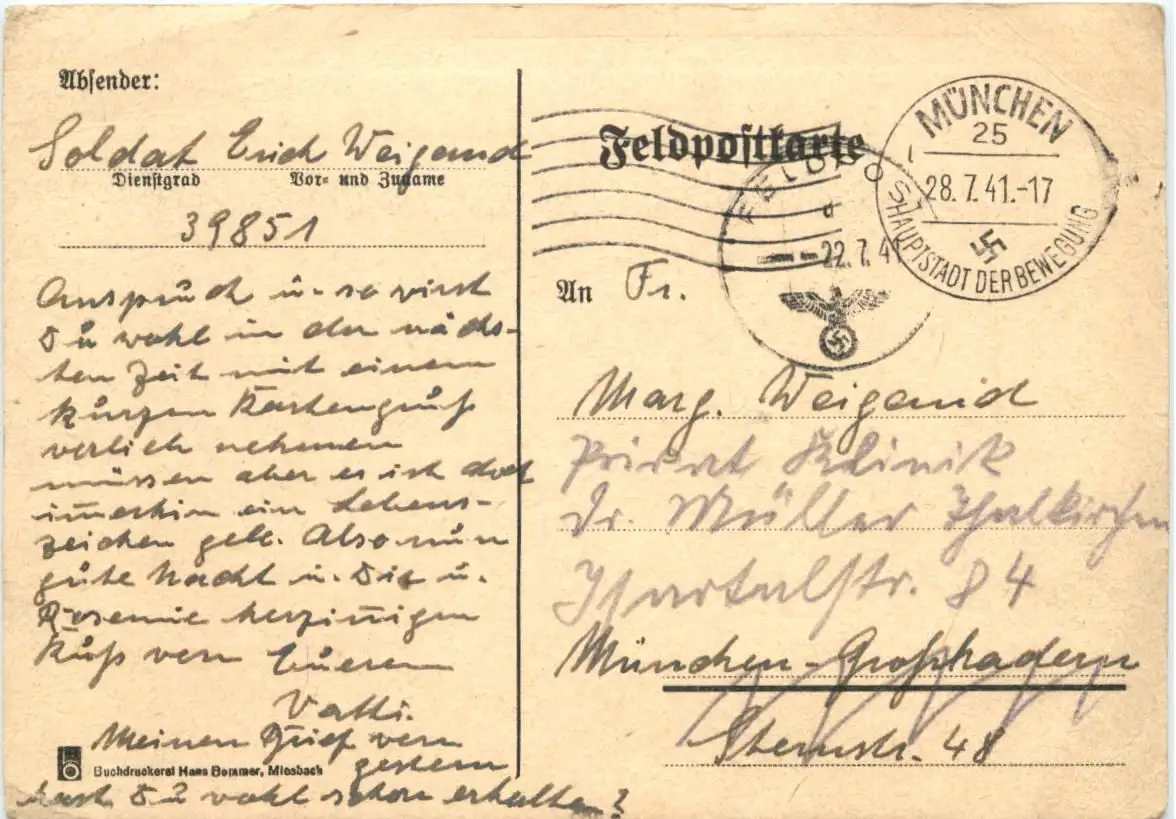 Absender:
Soldat Erich Weigand
Dienstgrad Vor- und Zuname
39851
Anspruch u. so wirst
Du wohl in der näch-
sten Zeit mit einem
kurzen Kartengruß
nehmen
müssen aber es ist doch
im̅erhin ein Lebens-
zeichen gell. Also nun
gute Nacht u. Dir u.
Rosemie herzin̅igen
Kuß von Eueren
Vatti.
Meinen Brief von
gestern
hast Du wohl schon erhalten?
Buchdruckerei Hans Bommer, Miesbach
Feldpostkarte
FELDPOST
d
22.7.41
MÜNCHEN
25
28.7.41.-17
HAUPTSTADT DER BEWEGUNG
An Fr.
Marg. Weigand
Privat Klinik
Dr. Müller Thalkirchen
Isartalstr. 84
München-Großhadern
Sternstr. 48